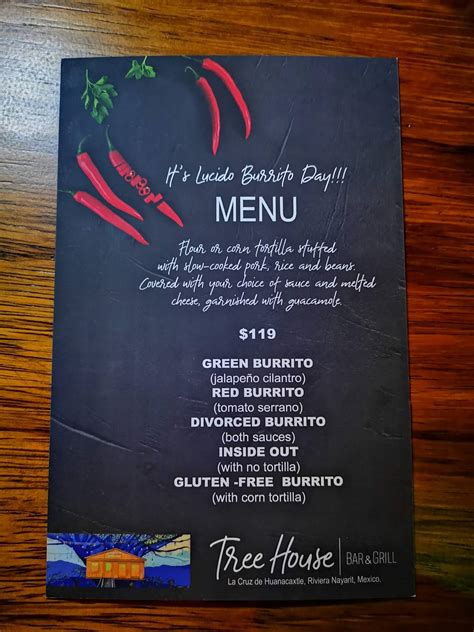 It's Lucido Burrito Day!!!
MENU
Flour or corn tortilla stuffed
with slow-cooked pork, rice and beans.
Covered with your choice of sauce and melted
cheese, garnished with guacamole.
$119
GREEN BURRITO
(jalapeño cilantro)
RED BURRITO
(tomato serrano)
DIVORCED BURRITO
(both sauces)
INSIDE OUT
(with no tortilla)
GLUTEN -FREE BURRITO
(with corn tortilla)
Tree House | BAR & GRILL
La Cruz de Huanacaxtle, Riviera Nayarit, Mexico.